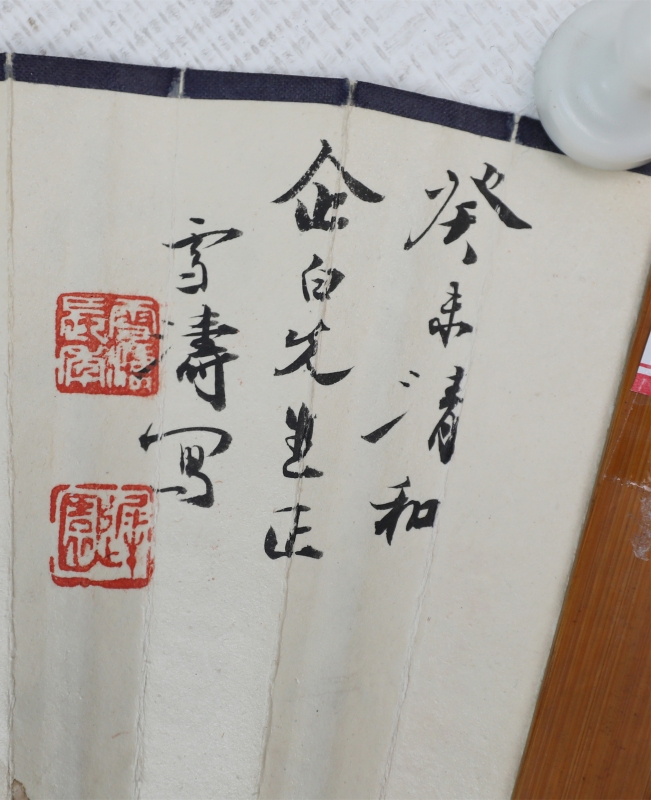 癸未清和
企白先生正
雪濤寫